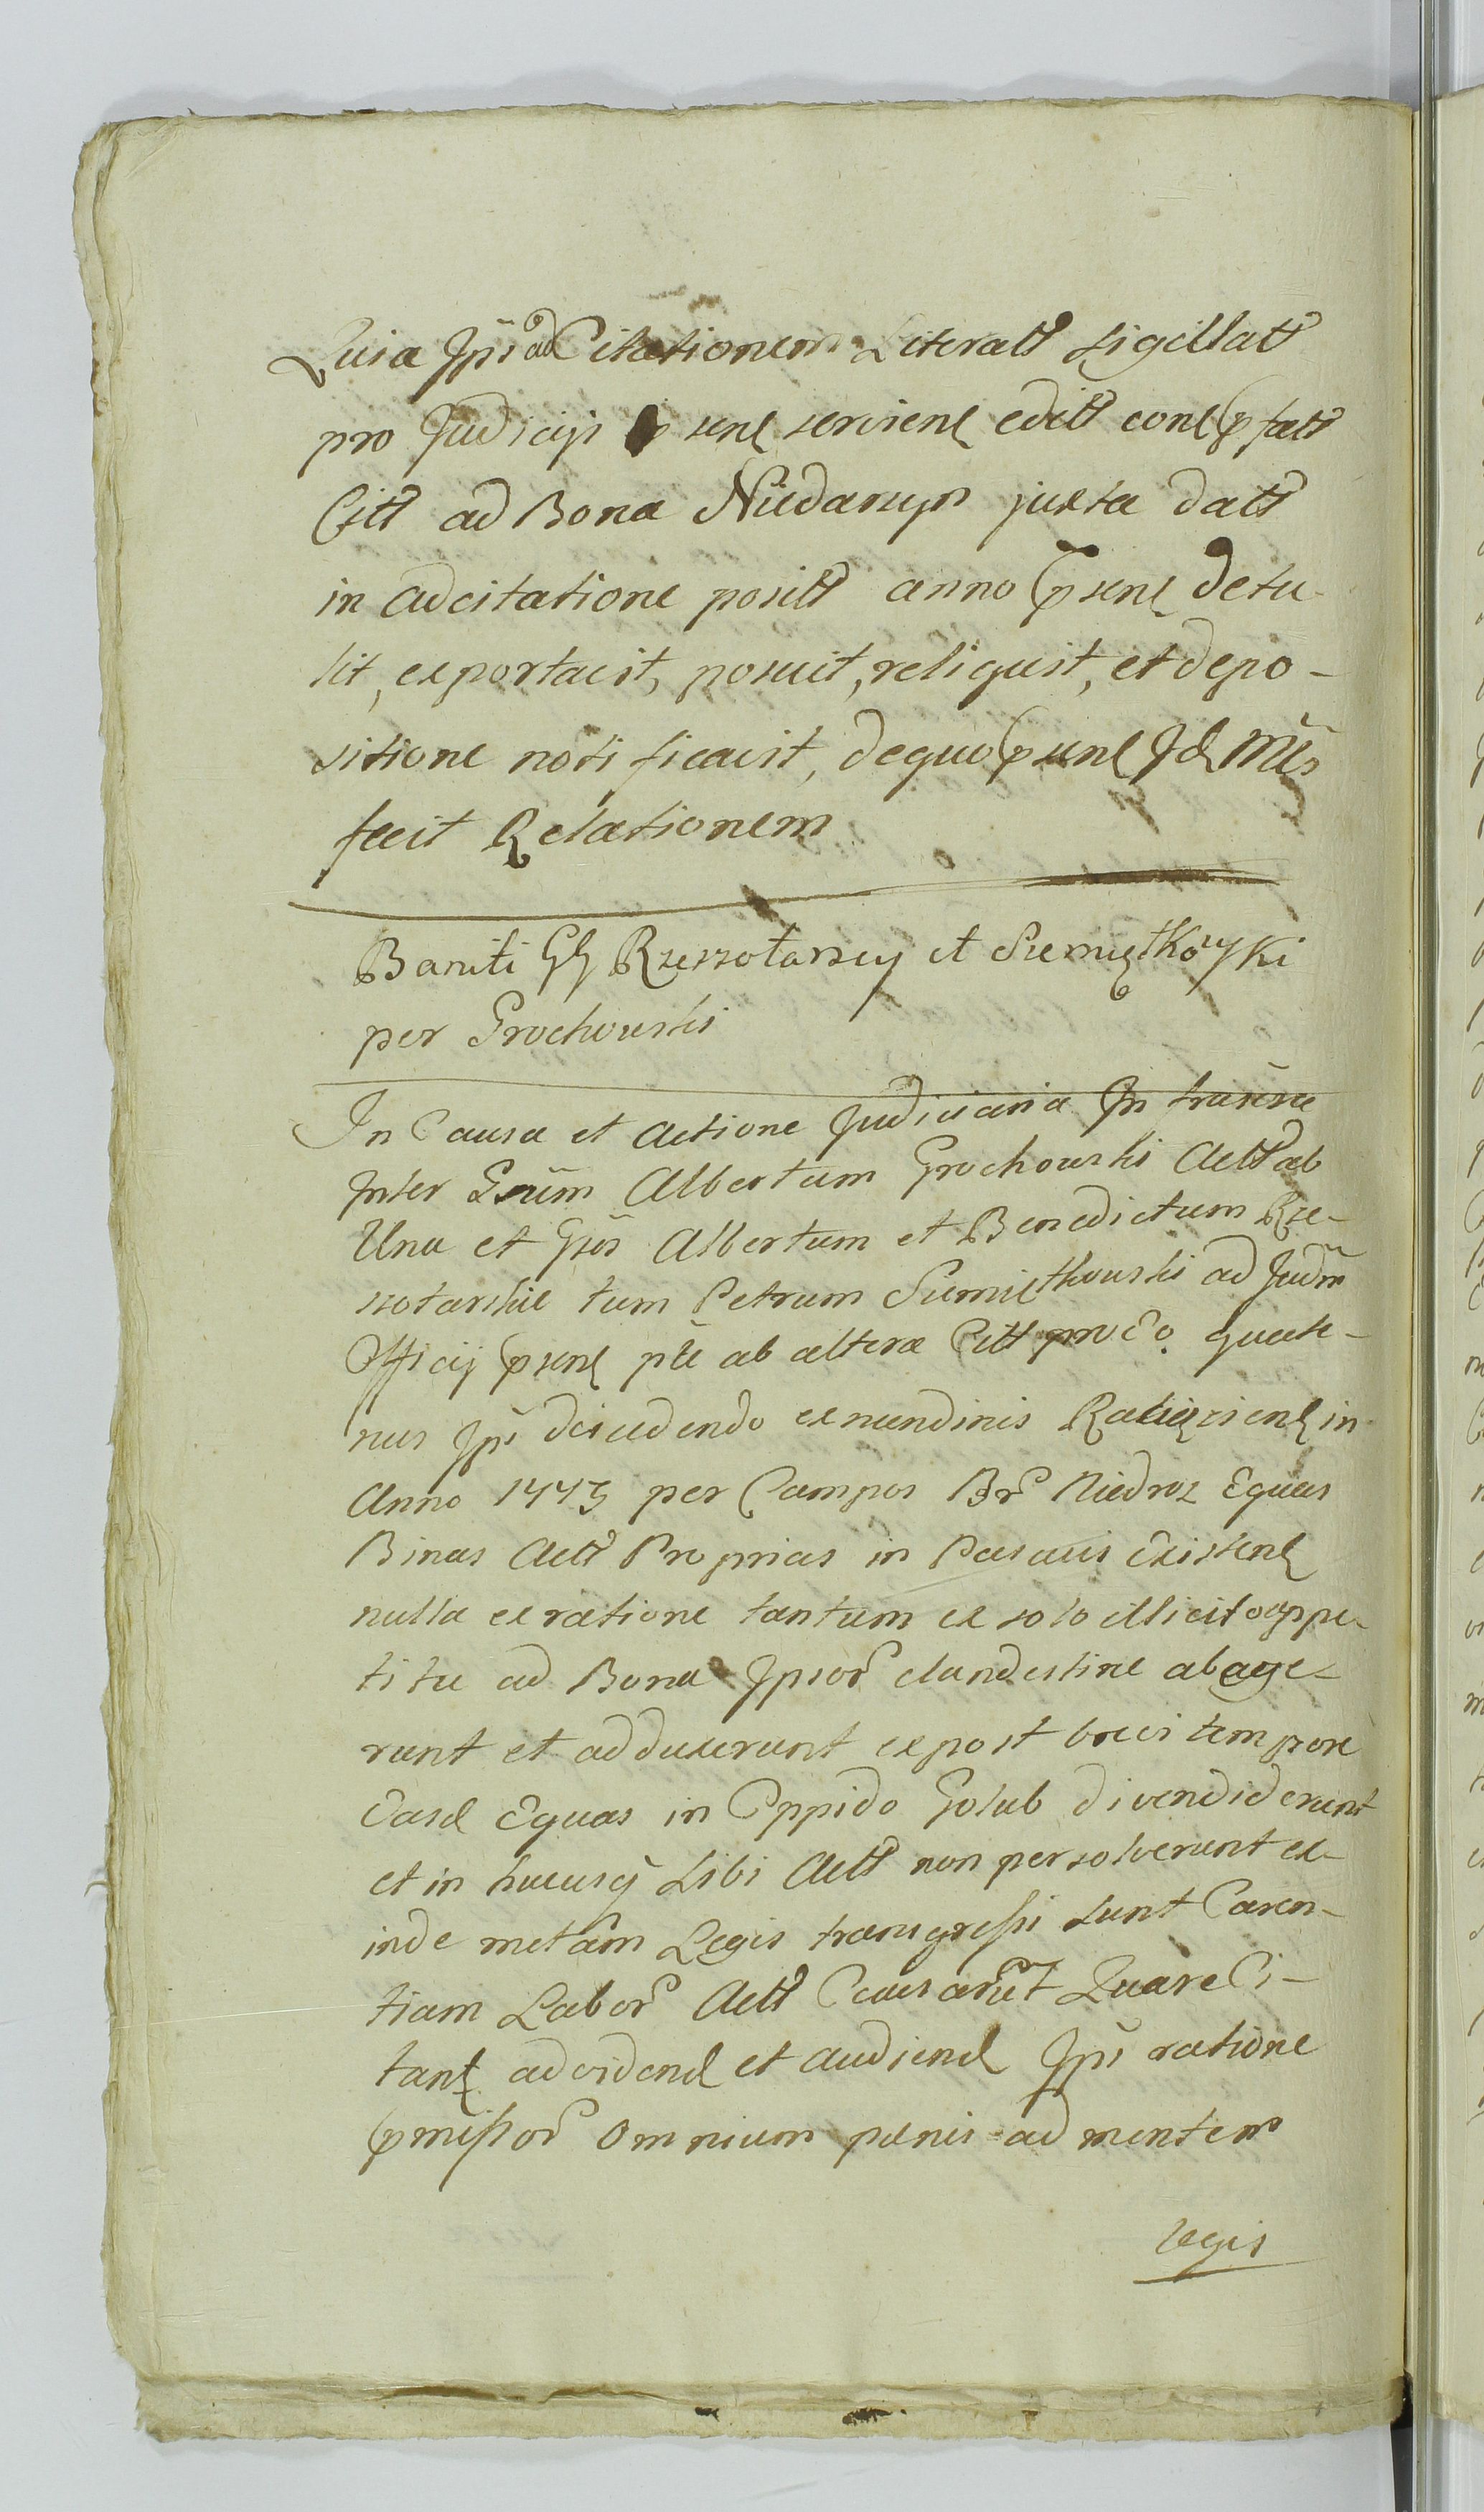 Quia Ipsi ad Citationem Literatt sigillatt
pro Judicijs psenȩ servienȩ editt conȩ pfatt
Citt ad Bona Niedarzyn juxta datt
in adcitatione positt anno psenȩ detu-
lit, exportavit, posuit, reliquit, et depo-
sitione notificavit, dequo psenȩ Id Mlis
fecit Relationem
Baniti GG Rzeszotarscy et Siemiętkowski
per Grochowski
In Causa et Actione Judiciaria In trascrae
Inter Gnūm Albertum Grochowski Actt ab
Una et Gnōs Albertum et Benedictum Rze-
szotarskie tum Petrum Siemiętkowski ad Judm̃
Officij psenȩ ptē ab altera Citt pro Eo quate-
nus Ipsi deicedendo ex nundinis Raciązienȩ in
Anno 1773 per Campos Br̃ Niedroz Equas
Binas Actt Proprias in Pascuis Existenȩ
nulla ex ratione tantum ex solo illicito appe-
titu ad Bona Ipsor̃ clandestine abage-
runt et adduxerunt expost brevi tempore
Easd Equas in Oppido Golub divendiderunt
et in hucusq̄ sibi Actt non persolverunt ex-
inde metam Legis transgressi sunt Caren-
tiam Labor̃ Actt Causarūt Quare Ci-
tanȩ ad vidend et audiend Ipsi ratione
pmissor̃ omnium penis ad mentem
legis